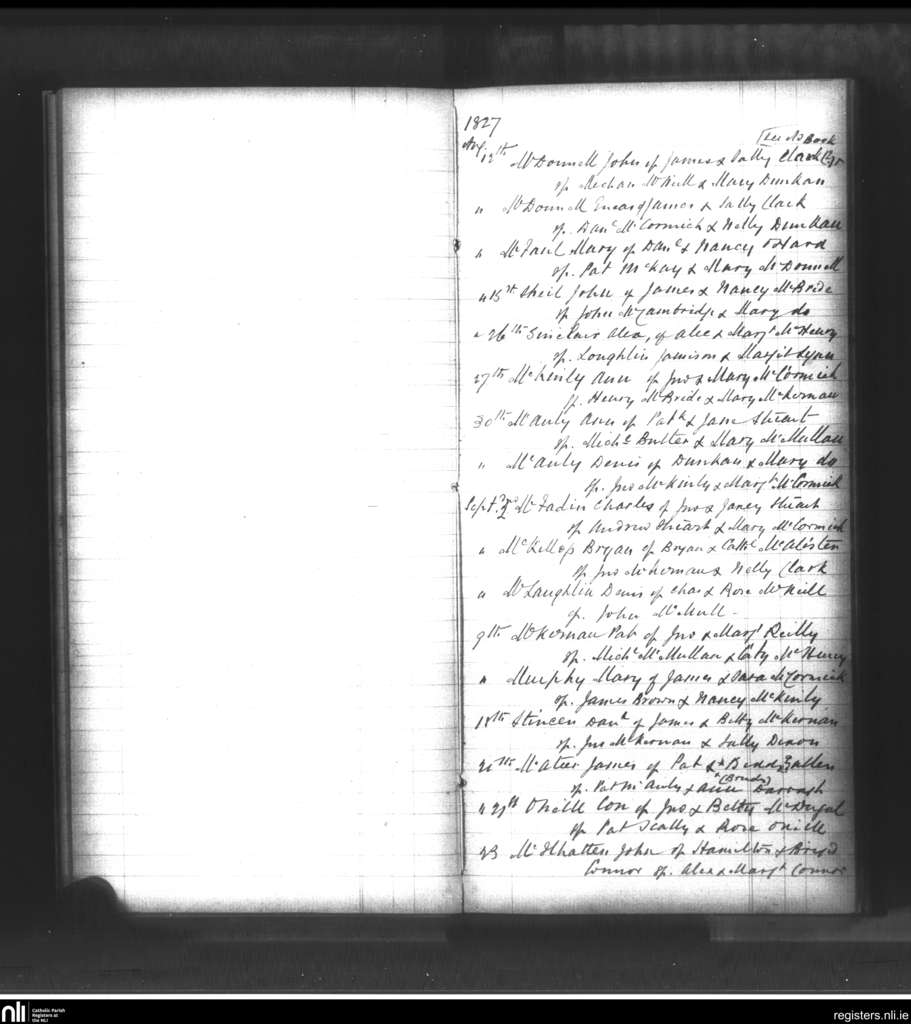 1827
Aug. 12th McDonnell John of James & Sally Clark
sp. McNeill & Mary Dunkan
" McDonnell Eneas of James & Sally Clark
sp. Danl McCormick & Nelly Dunkan
" McFaul Mary of Danl & Nancy
sp. Pat McKay & Mary McDonnell
" Sheil John of James & Nancy McBride
sp. John McCambridge & Mary do
" 26th Sinclair Alex, of Alex & Margt McHenry
sp. Loughlin Jamison & Margit Lynn
27th McKinly Ann of Jno & Mary McCormick
sp. Henry McBride & Mary McKernan
30th McAuly Ann of Patk & Jane Stuart
sp. Michl Butler & Mary McMullan
" McAuly Denis of Dunkan & Mary do
sp. Jno McKinly & Margt McCormick
Sept. McFadin Charles of Jno & Janey Stuart
sp. Andrew Stuart & Mary McCormick
" McKillop Bryan of Bryan & Cathe
sp. Jno McKernan & Nelly Clark
" McLaughlin Denis of Chas & Rose McNeill
sp. John
9th McKernan Pat of Jno & Margt Reilly
sp. Michl McMullan & Caty McHenry
" Murphy Mary of James & McCormick
sp. James Brown & Nancy McKinly
18th Danl of James & Betty McKernan
sp. Jno McKernan & Sally Dixon
McAteer James of Pat &
sp. Pat McAuly & Ann Darragh
" ONeill Con of Jno & Betty McDugal
sp. Pat Scally & Rose ONeill
23 John of Hamilton &
Connor sp. Alex & Margt Connor
nli
Catholic Parish
Registers at
the NLI
registers.nli.ie